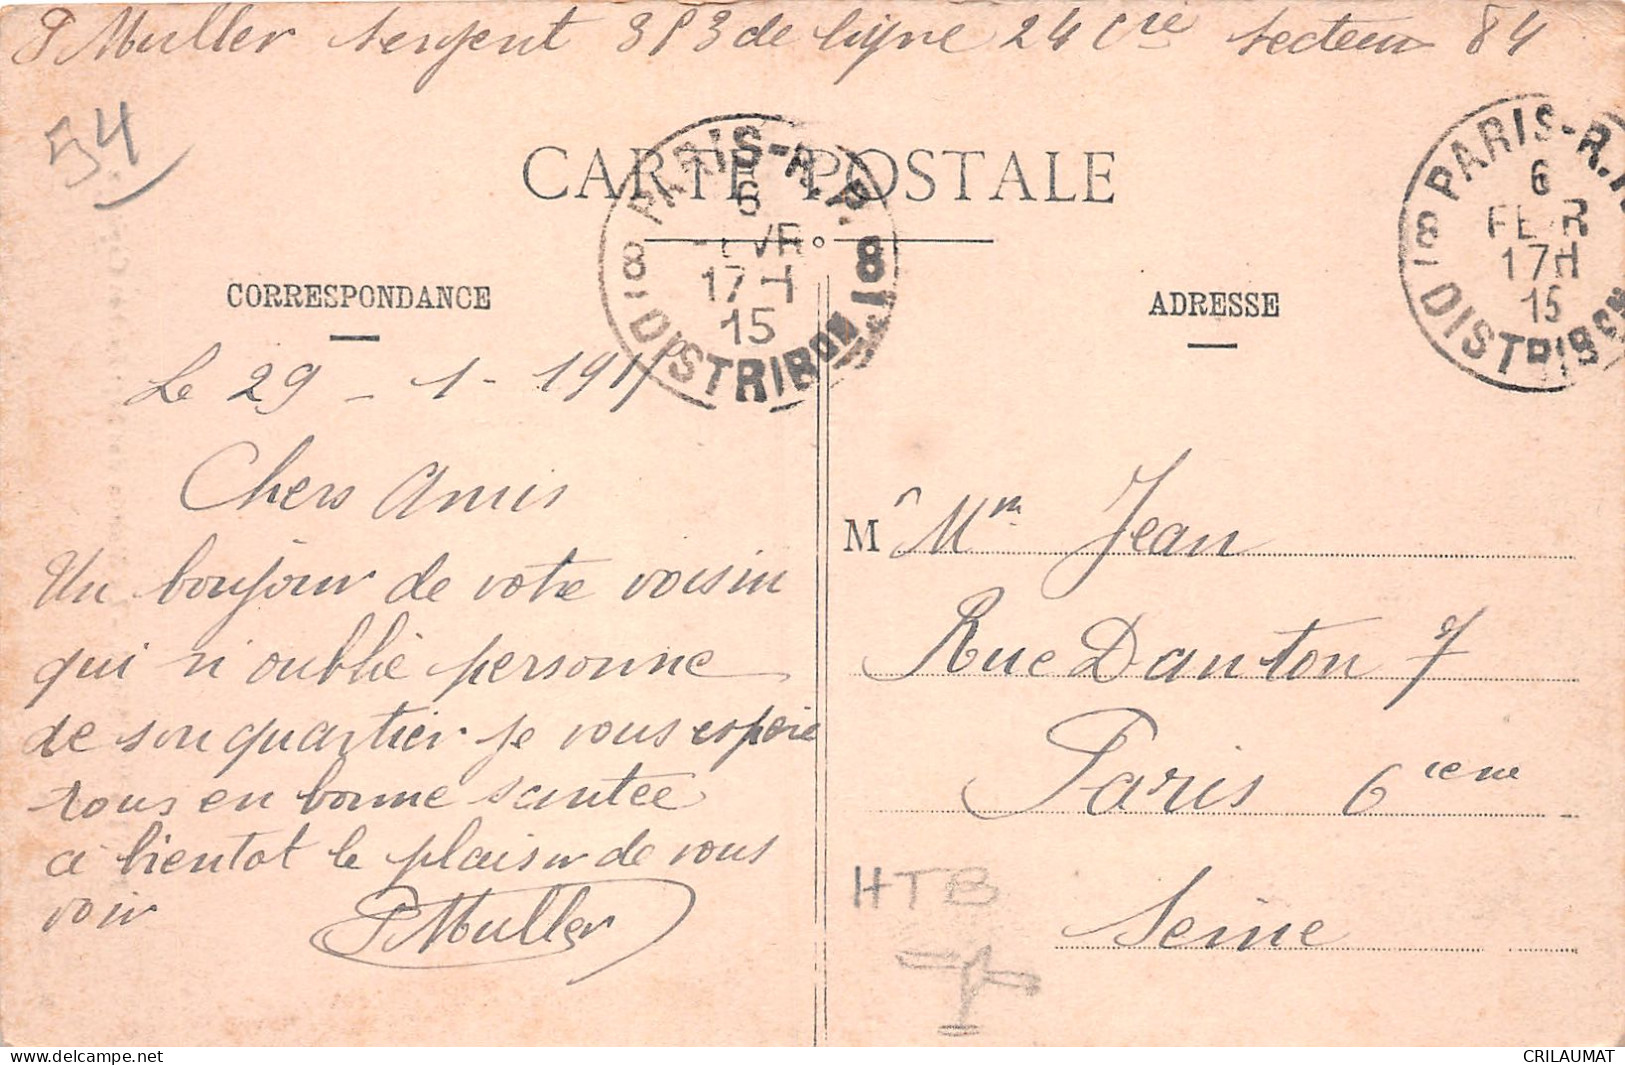 P Muller sergent 353 de ligne 24 Cie secteur 84
54
CARTE POSTALE
PARIS-R.P.
6
FEVR
17H
15
8 DISTRIBON 8
PARIS-R.P.
6
FEVR
17H
15
8 DISTRIBON
CORRESPONDANCE
ADRESSE
Le 29 - 1 - 1915
Chers Amis
Un bonjour de votre voisin
qui n'oublie personne
de son quartier je vous espere
tous en bonne santee
a bientot le plaisir de vous
voir
P Muller
M Mm Jean
Rue Danton 7
Paris 6ieme
Seine
HTB
CRILAUMAT